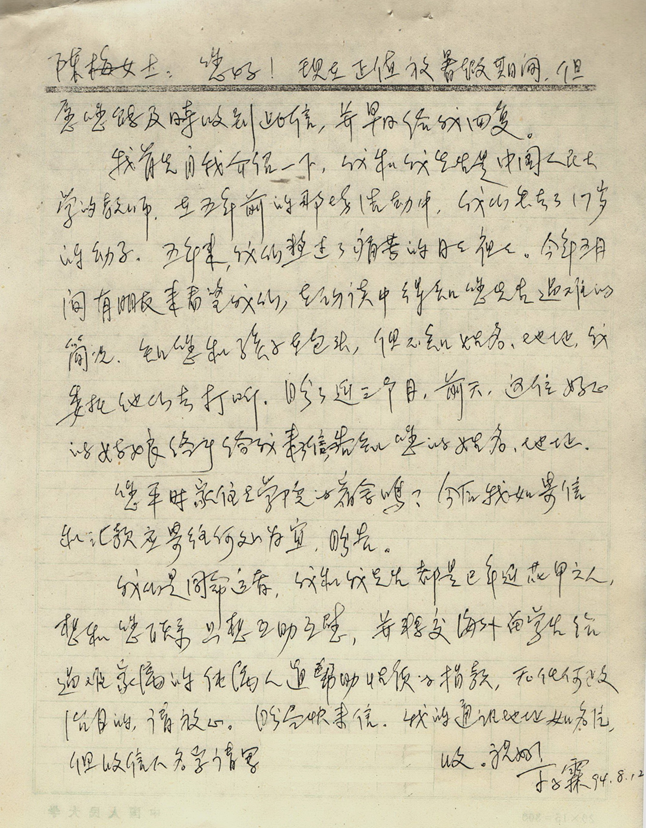 陈梅女士：您好！现在正值放暑假期间，但
愿您能及时收到此信，并早日给我回复。
我首先自我介绍一下，我和我先生是中国人民大
学的教师，在五年前的那场活动中，我们失去了17岁
的幼子。五年来，我们熬过了痛苦的日日夜夜。今年五月
间有朋友来看望我们，在访谈中得知您先生遇难的
简况，知您和孩子在包头，但不知姓名、地址，我
委托他们去打听，盼了近三个月，前天，这位好心
的姑娘终于给我来信，告知您的姓名、地址。
您平时家住在学院的宿舍吗？今后我如果信
和汇款应寄往何处为宜，盼告。
我们是同命运者，我和我先生都是已年近花甲之人，
想和您联系只想互助互慰，并转交海外留学生给
遇难家属的纯属人道帮助性质的捐款，无任何政
治目的，请放心。盼尽快来信。我的通讯地址如名片，
但收信人名字请写 收。祝好！
丁子霖 94.8.12
中国人民大学